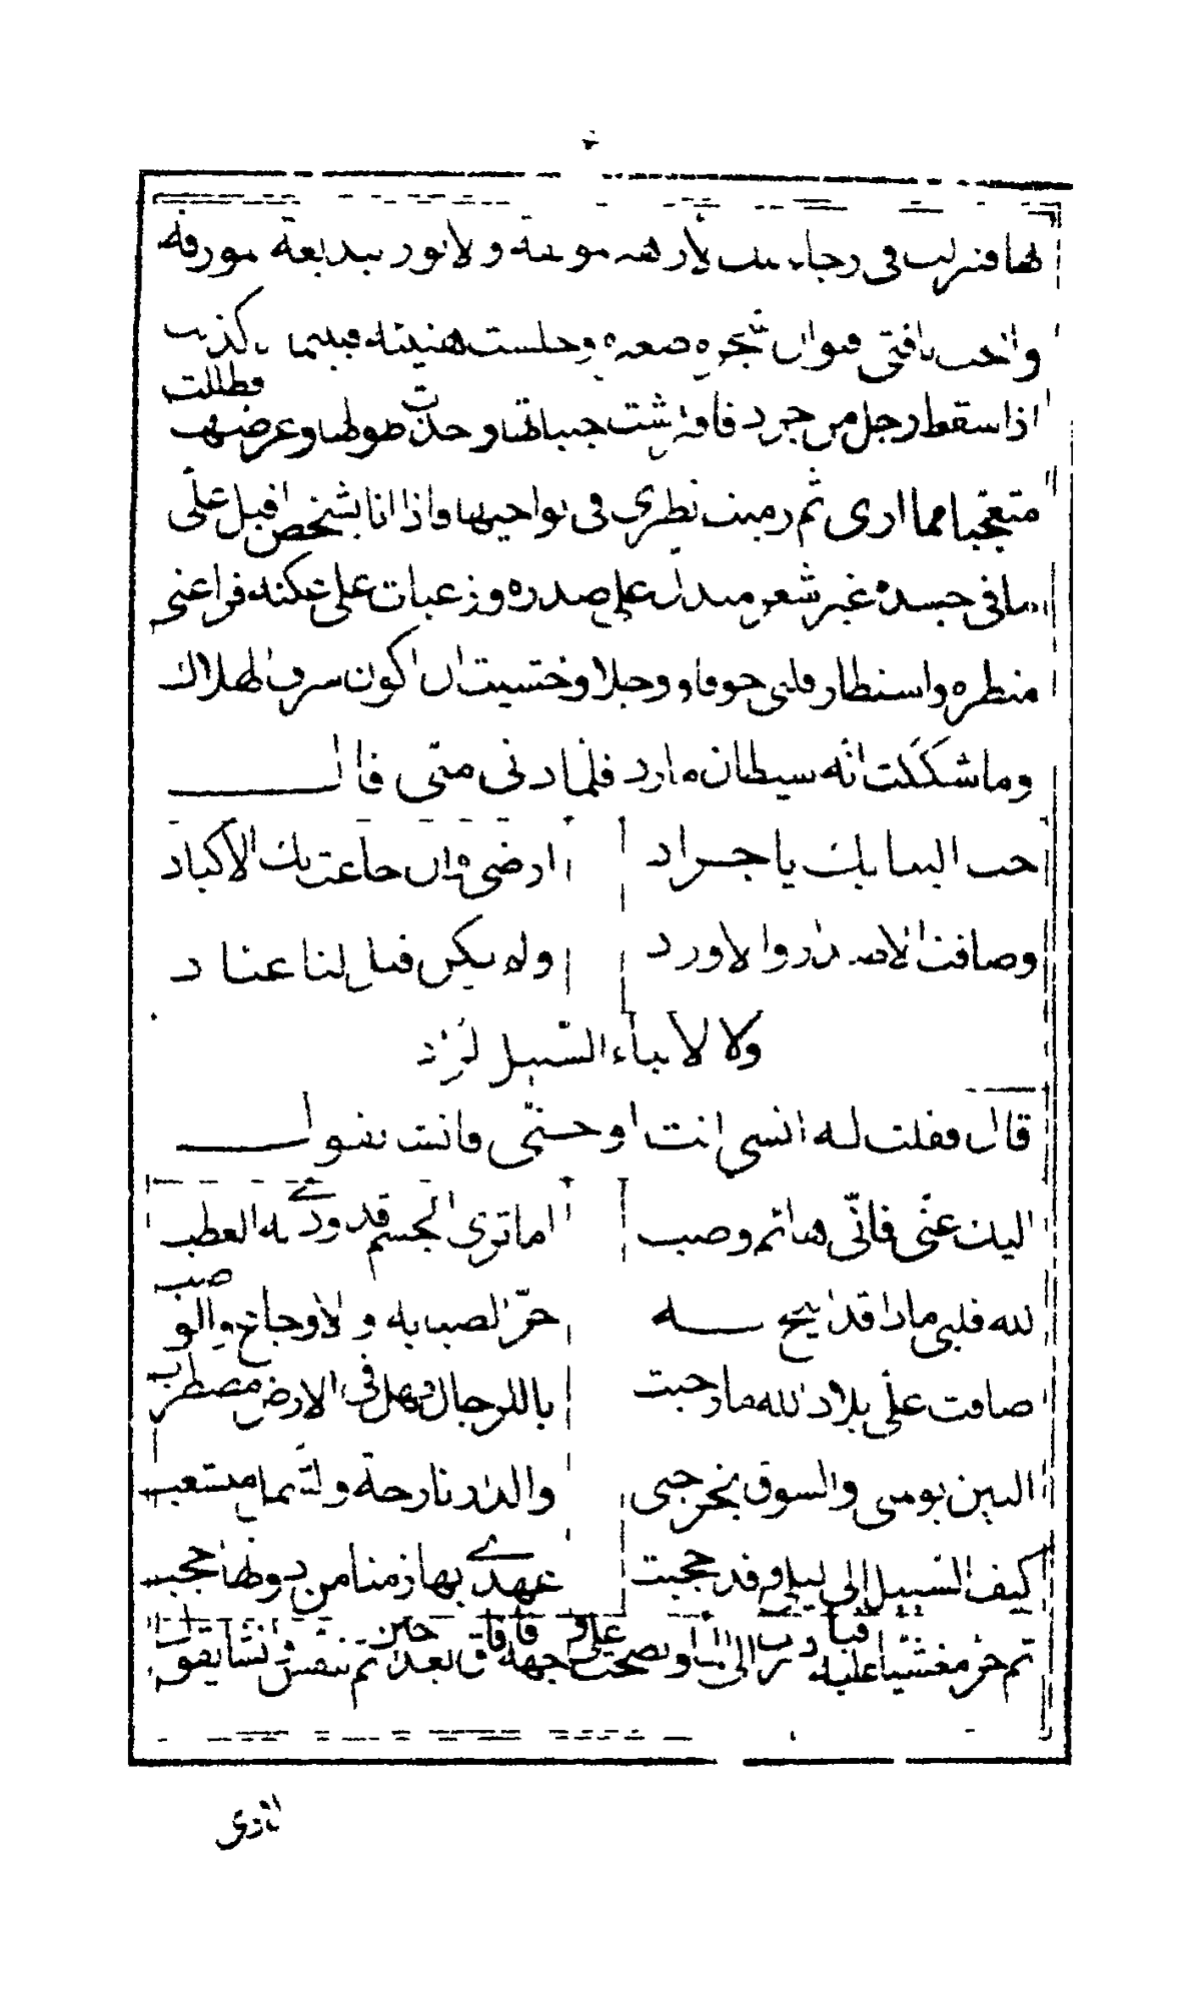 لها فنزلت فى رجاء بيت لأزهار مونقة ولا نور ببديعة مورقة
وانحب يا فتى فنوات شجره صعده وجلست هنيئة فبينما كذلك
اذا سقط رجل من جرد فافترشت جنباتها وحذت طولها وعرضها فظللت
متعجبا مما ارى ثم رميت نظرى فى نواحيها واذا انا بشخص اقبل علىّ
ما فى جسده غير شعر مسدل على صدره وزغبات على عكنه فراعنى
منظره واستطار قلبى خوفا ووجلا وخشيت ان اكون شرفت الهلاك
وما شككت انّه شيطان مارد فلمّا دنى منّى قال
حب السبا بك يا جراد ارضى وان جاعت بك الاكباد
وضاقت الاصدار والاوراد ولم يكن قبل لنا عناد
ولا لأبناء السّبيل زاد
قال فقلت له انسى انت او جنّى فانت تقول
اليك عنّى فانّى هائم وصب اما ترى الجسم قد ودى به العطب
لله قلبى ماذا قد اتيح له حرّ الصبابه والاوجاع والوصب
ضاقت علىّ بلاد الله ما رحبت يا للرجال وهل فى الارض مضطرب
البين يومى والشوق يجرحنى والدار نازحة والشمل منشعب
كيف السّبيل الى ليلى وقد حجبت عهدى بها زمنا من دونها حجب
ثم خرّ مغشيا عليه فبادرت الى الماء ونضحت على وجهه فافاق بعد حين ثم تنفّس وانشا يقول